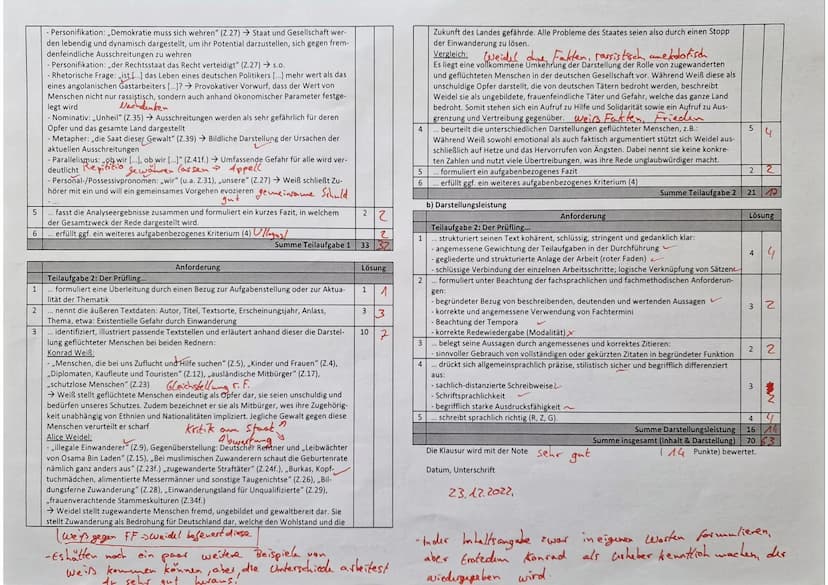 - Personifikation: „Demokratie muss sich wehren" (Z.27) → Staat und Gesellschaft wer-
den lebendig und dynamisch dargestellt, um ihr Potential darzustellen, sich gegen frem-
denfeindliche Ausschreitungen zu wehren
- Personifikation: „der Rechtsstaat das Recht verteidigt" (Z.27) → s.o.
- Rhetorische Frage: „ist [...] das Leben eines deutschen Politikers [...] mehr wert als das
eines angolanischen Gastarbeiters [...]? → Provokativer Vorwurf, dass der Wert von
Menschen nicht nur rassistisch, sondern auch anhand ökonomischer Parameter festge-
legt wird Nachdenken
- Nominativ: „Unheil" (Z.35) → Ausschreitungen werden als sehr gefährlich für deren
Opfer und das gesamte Land dargestellt
- Metapher: „die Saat dieser Gewalt" (Z.39) → Bildliche Darstellung der Ursachen der
aktuellen Ausschreitungen
- Parallelismus: „ob wir [...], ob wir [...]" (Z.41f.) → Umfassende Gefahr für alle wird ver-
deutlicht Repititio gewähren lassen → Appell
- Personal-/Possessivpronomen: „wir" (u.a. Z.31), „unsere" (Z.27) → Weiß schließt Zu-
hörer mit ein und will ein gemeinsames Vorgehen evozieren gemeinsame Schuld
- ... gut
5 ... fasst die Analyseergebnisse zusammen und formuliert ein kurzes Fazit, in welchem 2 2
der Gesamtzweck der Rede dargestellt wird.
6 ... erfüllt ggf. ein weiteres aufgabenbezogenes Kriterium (4) 2
Summe Teilaufgabe 1 33 32
Anforderung Lösung
Teilaufgabe 2: Der Prüfling...
1 ... formuliert eine Überleitung durch einen Bezug zur Aufgabenstellung oder zur Aktua- 1 1
lität der Thematik
2 ... nennt die äußeren Textdaten: Autor, Titel, Textsorte, Erscheinungsjahr, Anlass, 3 3
Thema, etwa: Existentielle Gefahr durch Einwanderung
3 ... identifiziert, illustriert passende Textstellen und erläutert anhand dieser die Darstel- 10 7
lung geflüchteter Menschen bei beiden Rednern:
Konrad Weiß:
- „Menschen, die bei uns Zuflucht und Hilfe suchen" (Z.5), „Kinder und Frauen" (Z.4),
„Diplomaten, Kaufleute und Touristen" (Z.12), „ausländische Mitbürger" (Z.17),
„schutzlose Menschen" (Z.23) Gleichstellung r. F.
→ Weiß stellt geflüchtete Menschen eindeutig als Opfer dar, sie seien unschuldig und
bedürfen unseres Schutzes. Zudem bezeichnet er sie als Mitbürger, was ihre Zugehörig-
keit unabhängig von Ethnien und Nationalitäten impliziert. Jegliche Gewalt gegen diese
Menschen verurteilt er scharf Kritik am Staat
Alice Weidel: Abwertung
- „illegale Einwanderer" (Z.9), Gegenüberstellung: Deutscher Rentner und „Leibwächter
von Osama Bin Laden" (Z.15), „Bei muslimischen Zuwanderern schaut die Geburtenrate
nämlich ganz anders aus" (Z.23f.) „zugewanderte Straftäter" (Z.24f.), „Burkas, Kopf-
tuchmädchen, alimentierte Messermänner und sonstige Taugenichtse" (Z.26), „Bil-
dungsferne Zuwanderung" (Z.28), „Einwanderungsland für Unqualifizierte" (Z.29),
„frauenverachtende Stammeskulturen (Z.34f.)
→ Weidel stellt zugewanderte Menschen fremd, ungebildet und gewaltbereit dar. Sie
stellt Zuwanderung als Bedrohung für Deutschland dar, welche den Wohlstand und die
Weiß gegen FF → Weidel befeuert diese
- Es hätten noch ein paar weitere Beispiele von
Weiß kommen können, aber die Unterschiede arbeitest
du sehr gut heraus!
Zukunft des Landes gefährde. Alle Probleme des Staates seien also durch einen Stopp
der Einwanderung zu lösen.
Vergleich: Weidel ohne Fakten, rassistisch anekdotisch
Es liegt eine vollkommene Umkehrung der Darstellung der Rolle von zugewanderten
und geflüchteten Menschen in der deutschen Gesellschaft vor. Während Weiß diese als
unschuldige Opfer darstellt, die von deutschen Tätern bedroht werden, beschreibt
Weidel sie als ungebildete, frauenfeindliche Täter und Gefahr, welche das ganze Land
bedroht. Somit stehen sich ein Aufruf zu Hilfe und Solidarität sowie ein Aufruf zu Aus-
grenzung und Vertreibung gegenüber. Weiß Fakten, Frieden
4 ... beurteilt die unterschiedlichen Darstellungen geflüchteter Menschen, z.B.: 5 4
Während Weiß sowohl emotional als auch faktisch argumentiert stützt sich Weidel aus-
schließlich auf Hetze und das Hervorrufen von Ängsten. Dabei nennt sie keine konkre-
ten Zahlen und nutzt viele Übertreibungen, was ihre Rede unglaubwürdiger macht.
5 ... formuliert ein aufgabenbezogenes Fazit 2 2
6 ... erfüllt ggf. ein weiteres aufgabenbezogenes Kriterium (4)
Summe Teilaufgabe 2 21
b) Darstellungsleistung
Anforderung Lösung
Teilaufgabe 2: Der Prüfling...
1 ... strukturiert seinen Text kohärent, schlüssig, stringent und gedanklich klar: 4 4
- angemessene Gewichtung der Teilaufgaben in der Durchführung
- gegliederte und strukturierte Anlage der Arbeit (roter Faden)
- schlüssige Verbindung der einzelnen Arbeitsschritte; logische Verknüpfung von Sätzen
2 ... formuliert unter Beachtung der fachsprachlichen und fachmethodischen Anforderun- 3 2
gen:
- begründeter Bezug von beschreibenden, deutenden und wertenden Aussagen
- korrekte und angemessene Verwendung von Fachtermini
- Beachtung der Tempora
- korrekte Redewiedergabe (Modalität)
3 ... belegt seine Aussagen durch angemessenes und korrektes Zitieren: 2 2
- sinnvoller Gebrauch von vollständigen oder gekürzten Zitaten in begründeter Funktion
4 ... drückt sich allgemeinsprachlich präzise, stilistisch sicher und begrifflich differenziert 3 2
aus:
- sachlich-distanzierte Schreibweise
- Schriftsprachlichkeit
- begrifflich starke Ausdrucksfähigkeit
5 ... schreibt sprachlich richtig (R, Z, G). 4 4
Summe Darstellungsleistung 16 14
Summe insgesamt (Inhalt & Darstellung) 70 63
Die Klausur wird mit der Note sehr gut ( 14 Punkte) bewertet.
Datum, Unterschrift
23.12.2022,
- In der Inhaltsangabe zwar in eigenen Worten formulieren,
aber trotzdem Konrad als Urheber kenntlich machen, der
wiedergegeben wird.